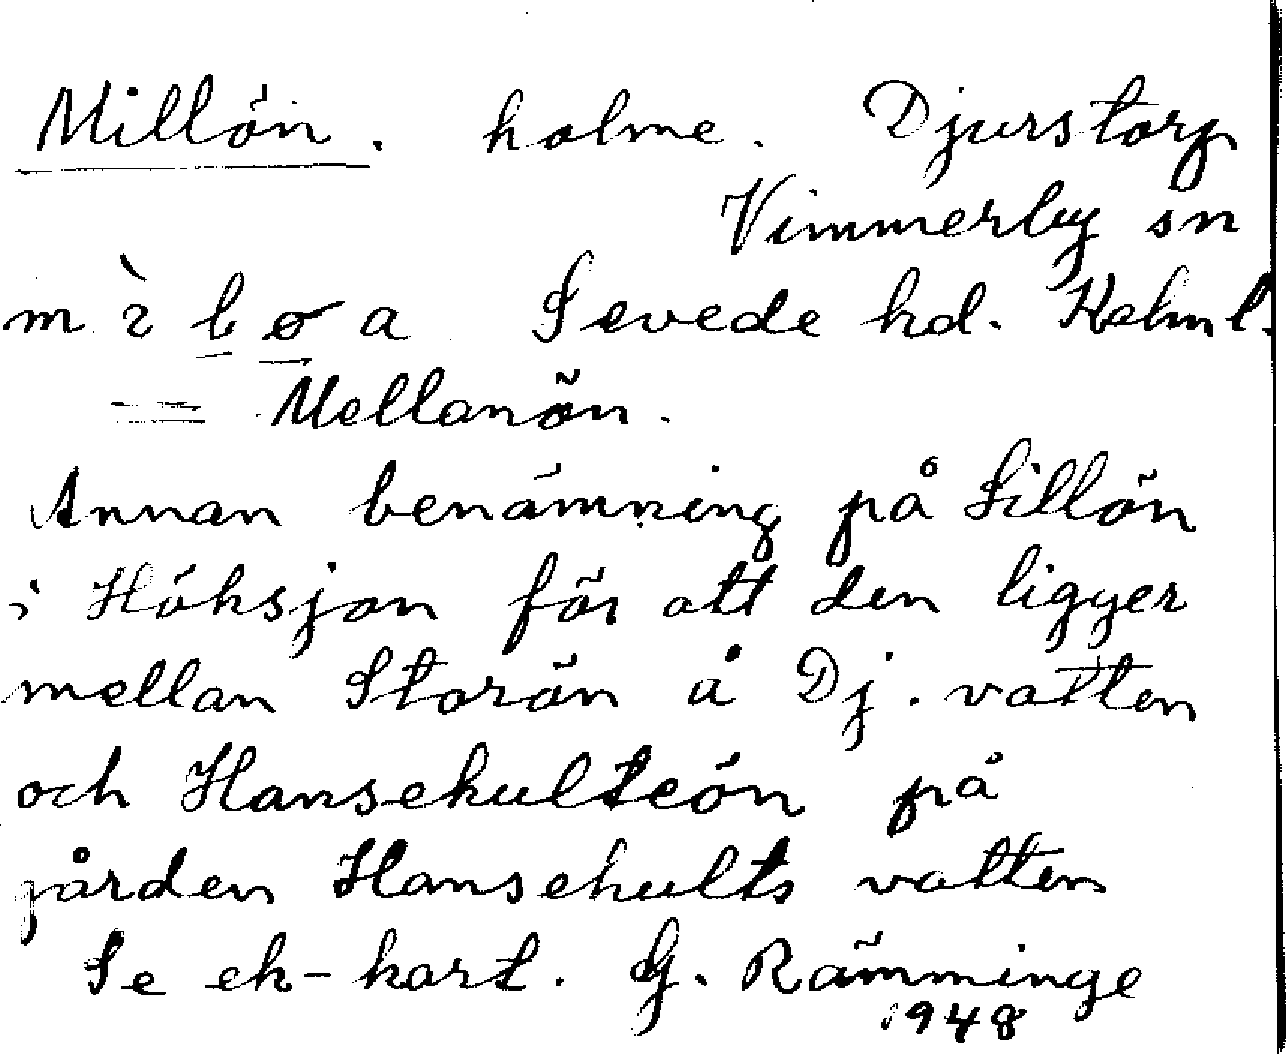 Millön. holme. Djurstorp
Vimmerby sn
Sevede hd. Kalm l.
= Mellanön.
Annan benämning på Lillön
i Höksjön för att den ligger
mellan Storön å Dj. vatten
och Hansehulteön på
gården Hansehults vatten
Se ek-kart. G. Rämminge
1948